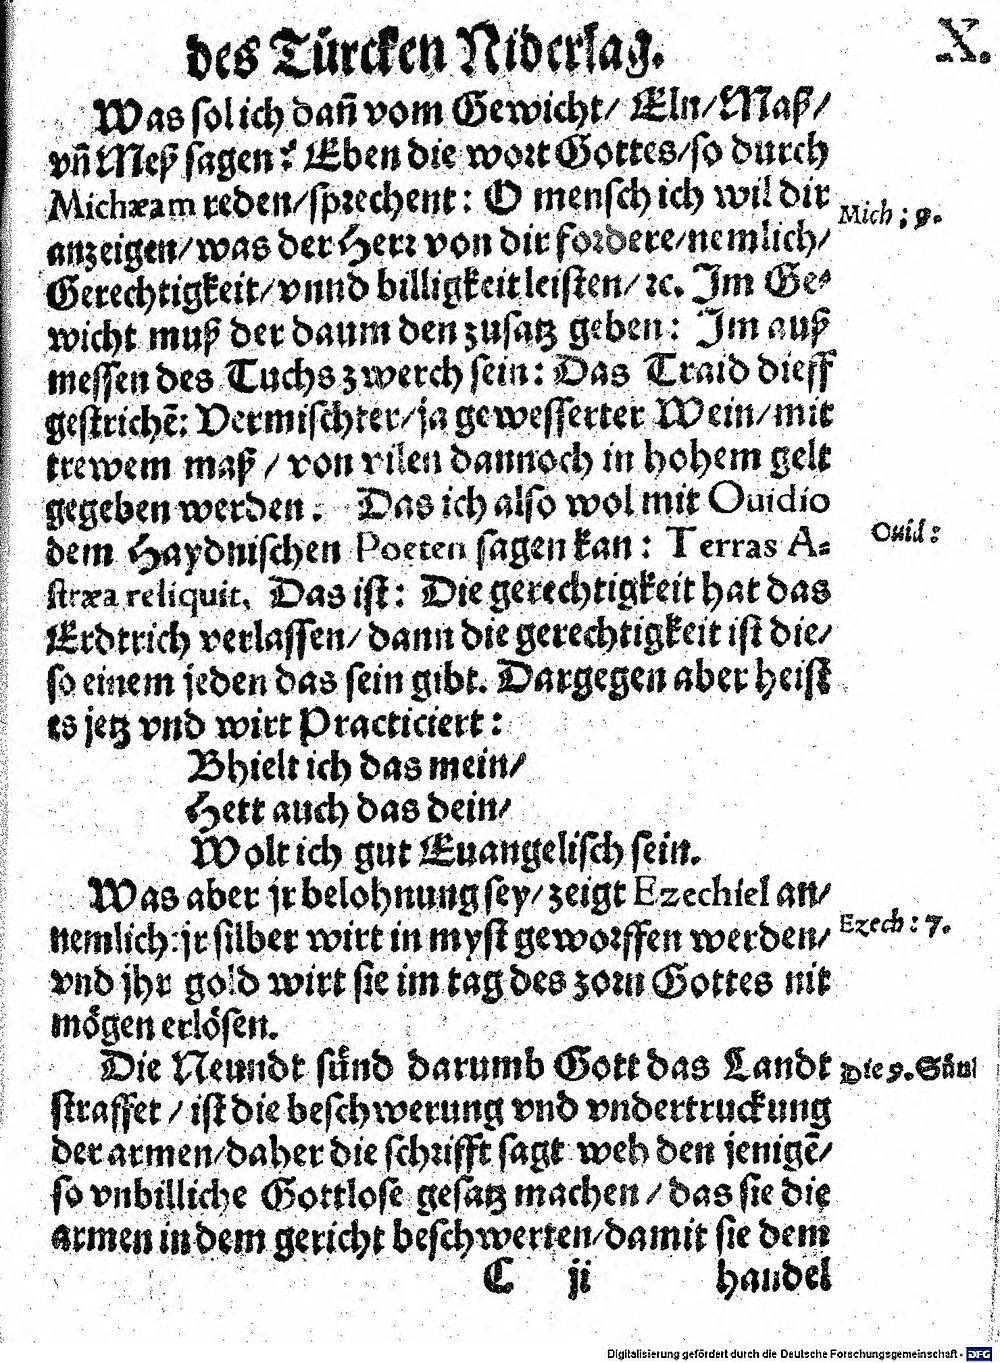 des Türcken Niderlag.
X.
Was sol ich dañ vom Gewicht/ Eln/ Maß/
vñ Meß sagen? Eben die wort Gottes/ so durch
Michæam reden/ sprechent: O mensch ich wil dir
Mich: 9.
anzeigen/ was der Herr von dir fordere/ nemlich/
Gerechtigkeit/ vnnd billigkeit leisten/ ꝛc. Im Ge-
wicht muß der daum den zusatz geben: Im auß
messen des Tuchs zwerch sein: Das Traid dieff
gestrichẽ: Vermischter/ ja gewesserter Wein/ mit
trewem maß / von vilen dannoch in hohem gelt
gegeben werden. Das ich also wol mit Ouidio
dem Haydnischen Poeten sagen kan: Terras A-
Ouid:
stræa reliquit. Das ist: Die gerechtigkeit hat das
Erdtrich verlassen/ dann die gerechtigkeit ist die/
so einem jeden das sein gibt. Dargegen aber heist
es jetz vnd wirt Practiciert:
Bhielt ich das mein/
Hett auch das dein/
Wolt ich gut Euangelisch sein.
Was aber jr belohnung sey/ zeigt Ezechiel an/
nemlich: jr silber wirt in myst geworffen werden/
Ezech: 7.
vnd jhr gold wirt sie im tag des zorn Gottes nit
mögen erlösen.
Die Neundt sünd darumb Gott das Landt
Die 9. Sünd
straffet / ist die beschwerung vnd vndertruckung
der armen/ daher die schrifft sagt weh den jenigẽ/
so vnbilliche Gottlose gesatz machen / das sie die
armen in dem gericht beschwerten/ damit sie dem
C ij
handel
Digitalisierung gefördert durch die Deutsche Forschungsgemeinschaft - DFG